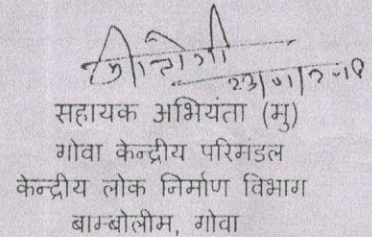 सहायक अभियंता (मु)
गोवा केन्द्रीय परिमंडल
केन्द्रीय लोक निर्माण विभाग
बाम्बोलीम, गोवा